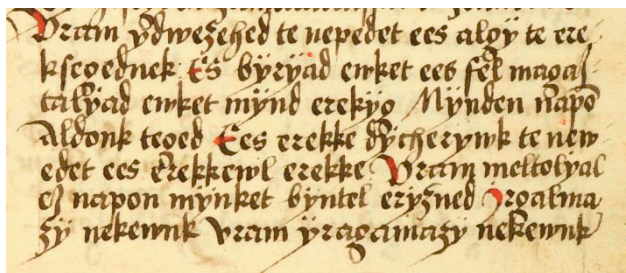 Vram ÿdwezehed te nepedet ees algÿ te ere
kseoednek Es bÿrÿad ewket ees fel magaſ
talÿad ewket mÿnd erekÿg Mÿnden napō
Aldonk teoed Ees erekke dÿcherÿwk te new
edet ees erekkewl erekke Vram meltolyal
ez napon mÿnket bÿntel erÿzned Irgalma
zÿ nekewnk vram ÿragamazÿ nekewnk